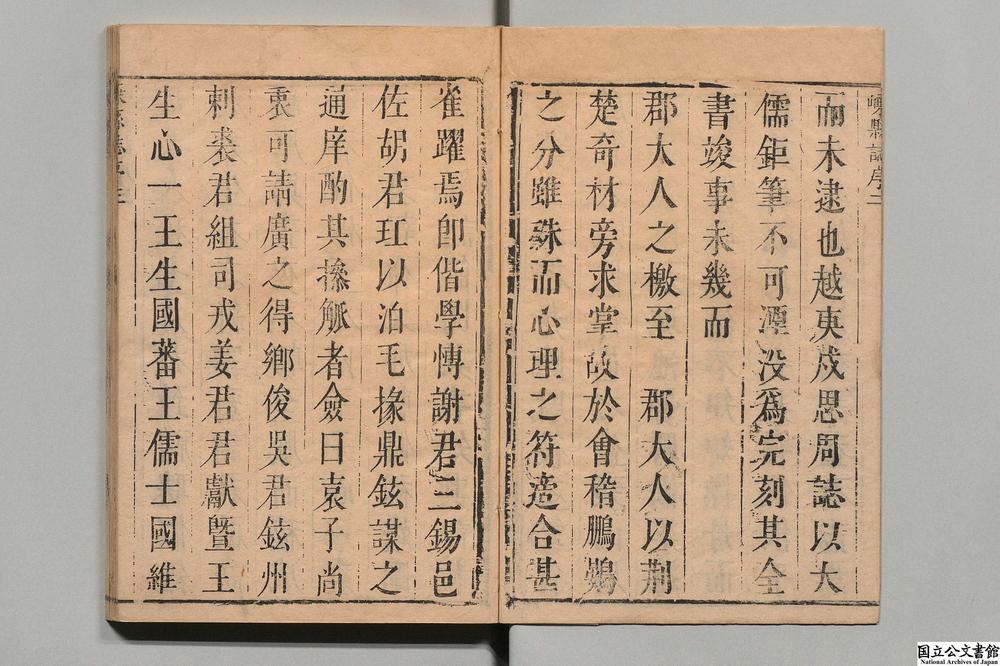 嵊縣誌序二
而未逮也越庚戍思周誌以大
儒鉅筆不可湮没爲完刻其全
書竣事未幾而
郡大人之檄至 郡大人以荆
楚奇材旁求掌故於會稽鵬鷃
之分雖殊而心理之符適合甚
雀躍焉卽偕學博謝君三錫邑
佐胡君玒以泊毛掾鼎鉉謀之
通庠酌其摻觚者僉曰袁子尚
衷可請廣之得鄉俊吳君鉉州
刺裘君組司戎姜君君獻曁王
生心一王生國蕃王儒士國維
国立公文書館
National Archives of Japan